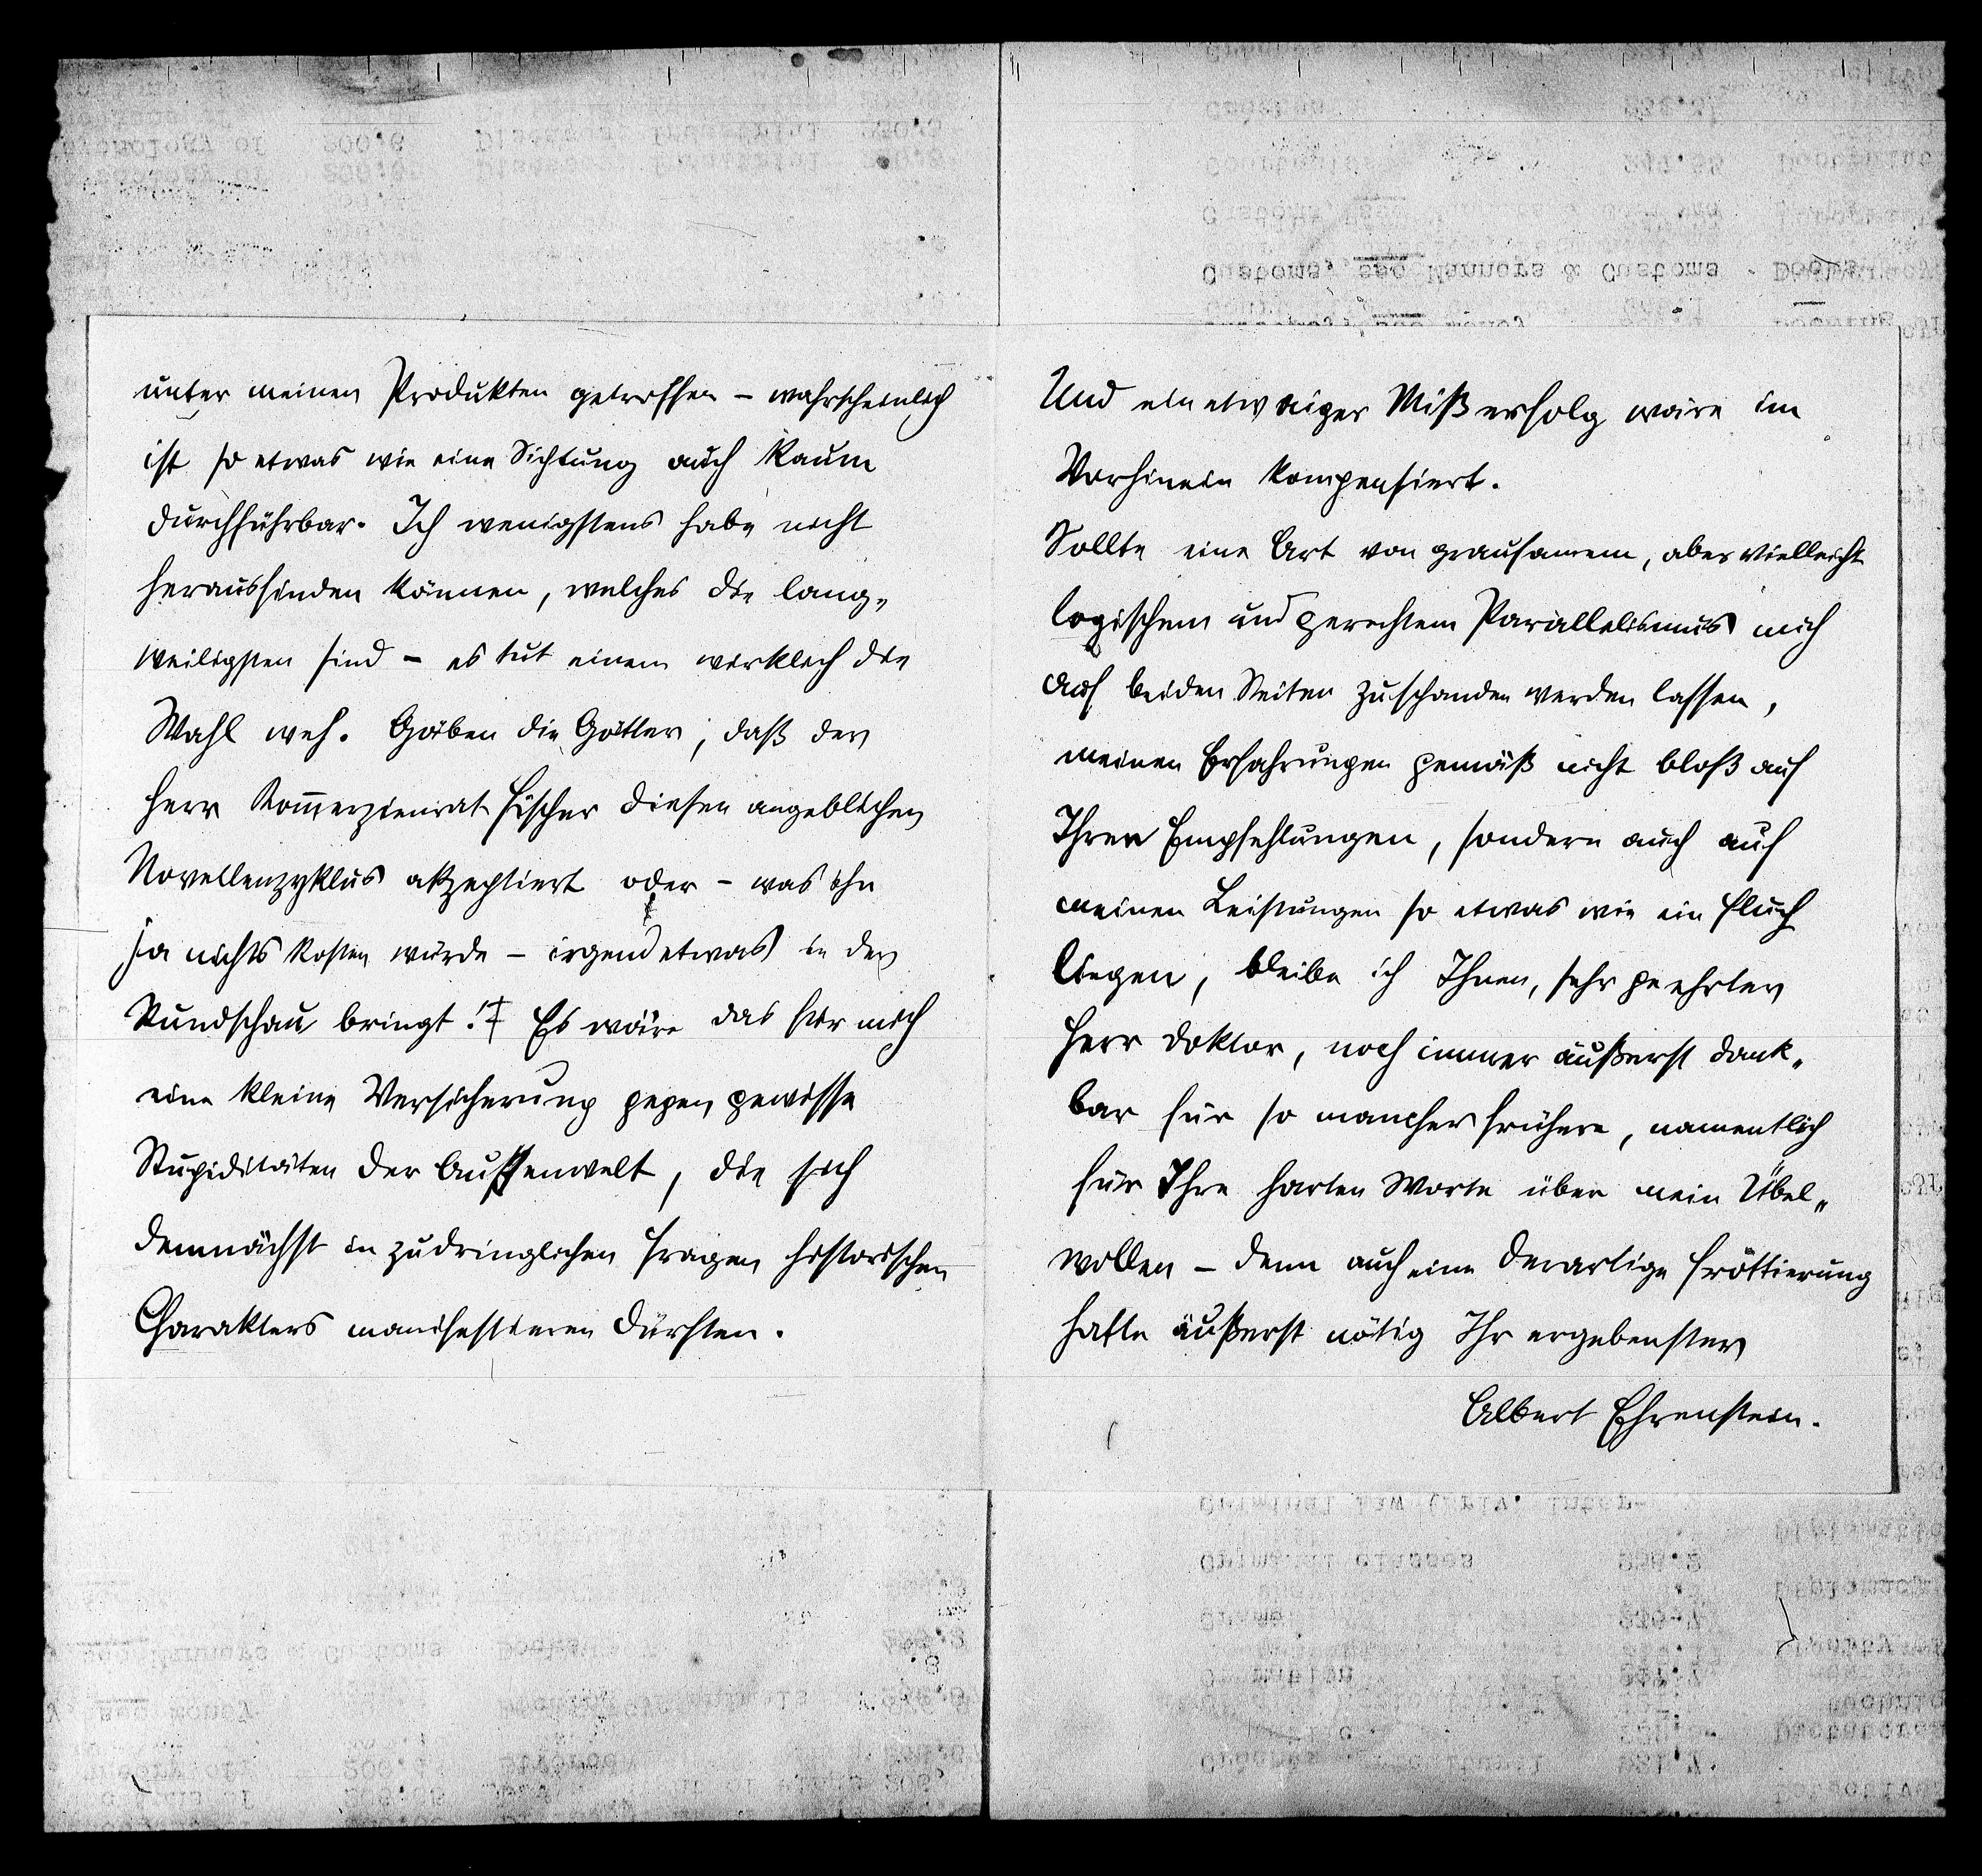 unter meinen Produkten getroffen – wahrscheinlich
ist so etwas wie eine Sichtung auch kaum
durchführbar. Ich wenigstens habe nicht
herausfinden können, welches die lang-
weiligsten sind – es tut einem wirklich die
Wahl weh. Gäben die Götter, daß der
Herr Kom̅erzienrat Fischer diesen angeblichen
Novellenzyklus akzeptiert oder – was ihn
ja nichts kosten würde – irgend etwas in der
Rundschau bringt! Es wäre das für mich
eine kleine Versicherung gegen gewisse
Stupiditäten der Aussenwelt, die sich
demnächst in zudringlichen Fragen historischen
Charakters manifestieren dürften.
Und ein etwaiger Mißerfolg wäre im
Vorhinein kompensiert.
Sollte eine Art von grausamem, aber vielleicht
logischem und gerechtem Parallelismus mich
auf beiden Seiten zuschanden werden lassen,
meinen Erfahrungen gemäß nicht bloß auf
Ihren Empfehlungen, sondern auch auf
meinen Leistungen so etwas wie ein Fluch
liegen, bleibe ich Ihnen, sehr geehrter
Herr Doktor, noch immer äußerst dank-
bar für so manches frühere, namentlich
für Ihre harten Worte über mein Übel-
wollen – denn auch eine derartige Frottierung
hatte äußerst nötig Ihr ergebenster
Albert Ehrenstein.
Customs, see Manners & Customs